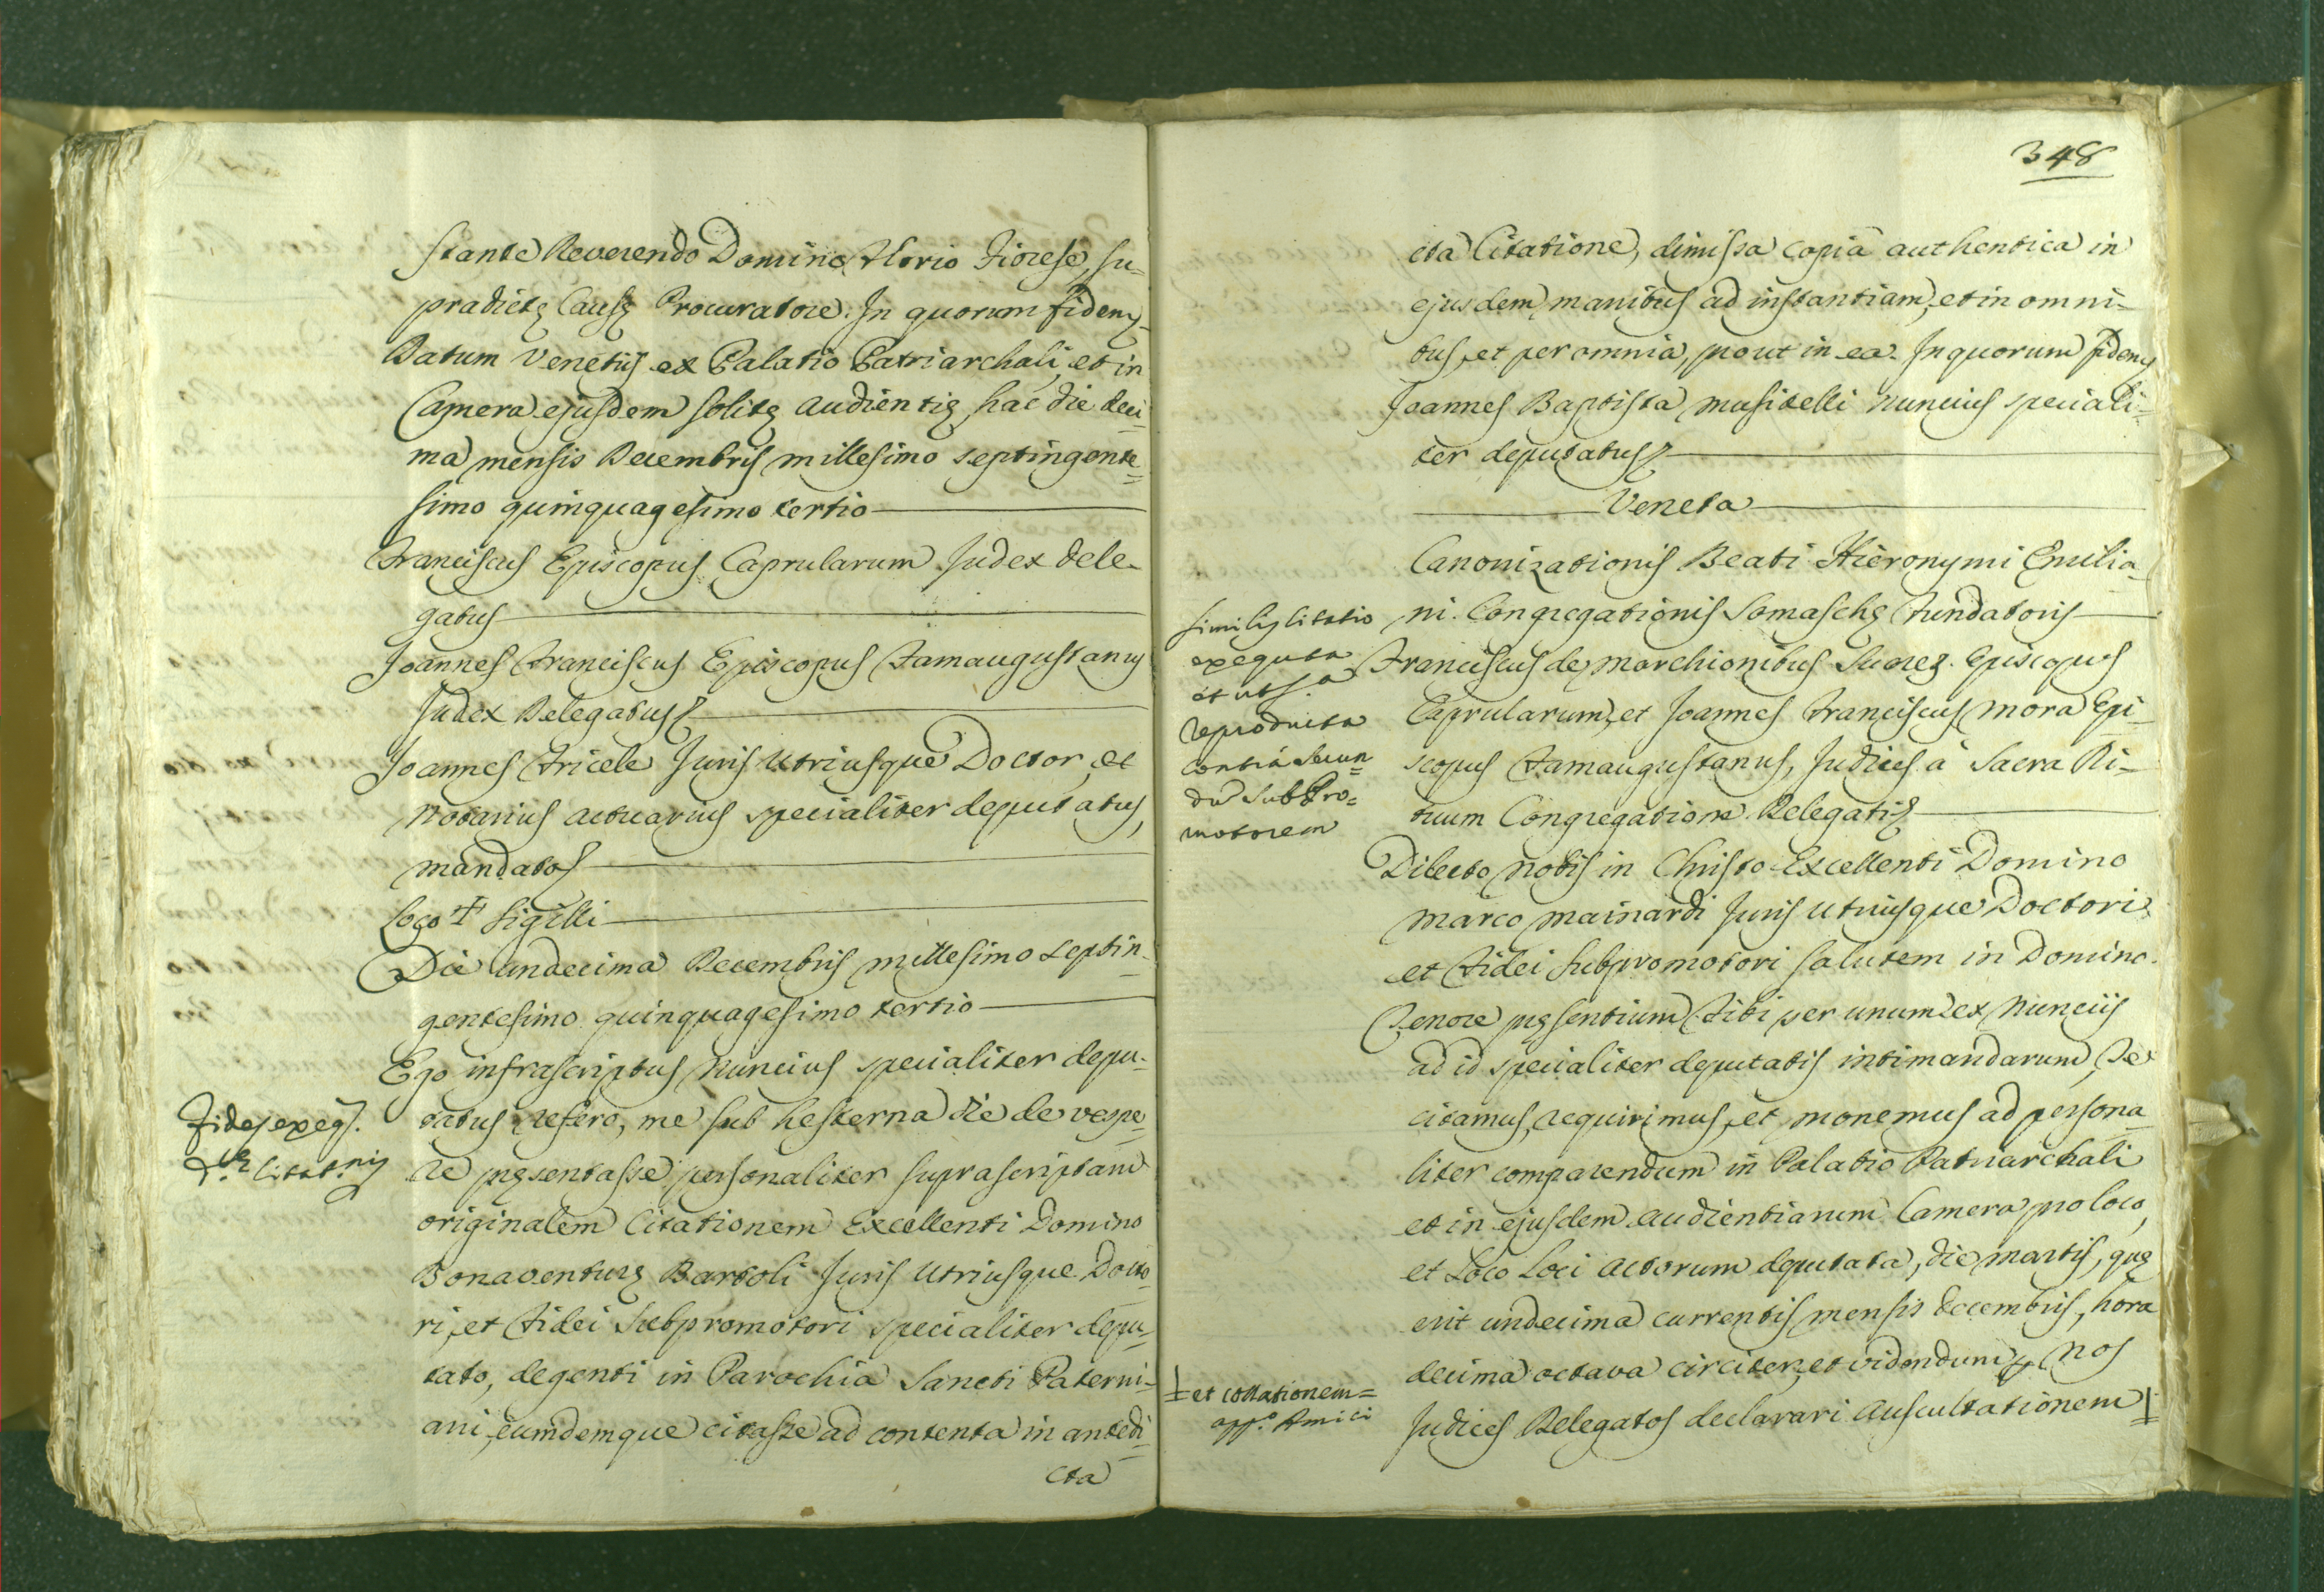 stante Reverendo Domino Florio Fiorese, su-
pradictę Causę Procuratore. In quorum fidem
Datum Venetijs ex Palatio Patriarchali, et in
Camera ejusdem solitę audientię hac die deci-
ma mensis Decembris millesimo septingente-
simo quinquagesimo tertio
Franciscus Episcopus Caprularum Judex dele-
gatus
Joannes Franciscus Episcopus Famaugustanus
Judex Delegatus
Joannes Fricele Juris Utriusque Doctor, et
Notarius actuarius specialiter deputatus,
mandatos
Loco + Sigilli
Die undecima Decembris millesimo septin-
gentesimo quinquagesimo tertio
Ego infrascriptus Nuncius specialiter depu-
Fides exeqs.
tatus refero, me sub hesterna die de vespe-
re pręsentasse personaliter suprascriptam
d.tę Citat.nis
originalem Citationem Excellenti Domino
Bonaventurę Bartoli Juris Utriusque Docto-
ri, et Fidei Subpromotori specialiter depu-
tato, degenti in Parochia Sancti Paterni-
ani, eumdemque citasse ad contenta in antedi-
cta
348
cta Citatione, dimissa copia authentica in
ejusdem manibus ad instantiam, et in omni-
bus, et per omnia, prout in ea. In quorum fidem
Joannes Baptista Musitelli Nuncius speciali-
ter deputatus
Veneta
Canonizationis Beati Hieronymi Emilia-
ni Congregationis Somaschę Fundatoris
Similis Citatio
exequta
et ut s.a
reproducta
contra Secun-
dũ SubPro-
motorem
Franciscus de Marchionibus Suarez Episcopus
Caprularum, et Joannes Franciscus Mora Epi-
scopus Famaugustanus, Judices à Sacra Ri-
tuum Congregatione Delegatis
Dilecto Nobis in Christo Excellenti Domino
Marco Mainardi Juris Utriusque Doctori
et Fidei Subpromotori salutem in Domino.
Tenore pręsentium Tibi per unum ex Nuncijs
ad id specialiter deputatis intimandarum, Te
citamus, requirimus, et monemus ad persona-
liter comparendum in Palatio Patriarchali
et in ejusdem audientiarum Camera pro loco,
et Loco Loci actorum deputata, die Martis, quę
erit undecima currentis mensis decembris, hora
decima octava circiter, et videndum p. Nos
Judices Delegatos declarari auscultationem
et collationem=
opp.e Amici